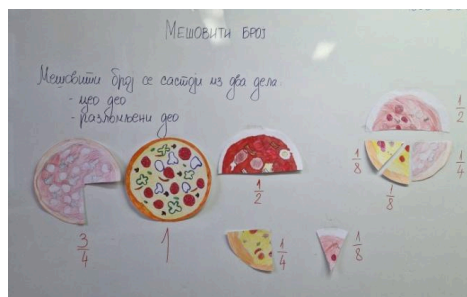 МЕШОВИТИ БРОЈ
Мешовити број се састоји из два дела:
- цео део
- разломљени део
1/2
1/8
1/4
1/8
1/2
3/4
1
1/4
1/8